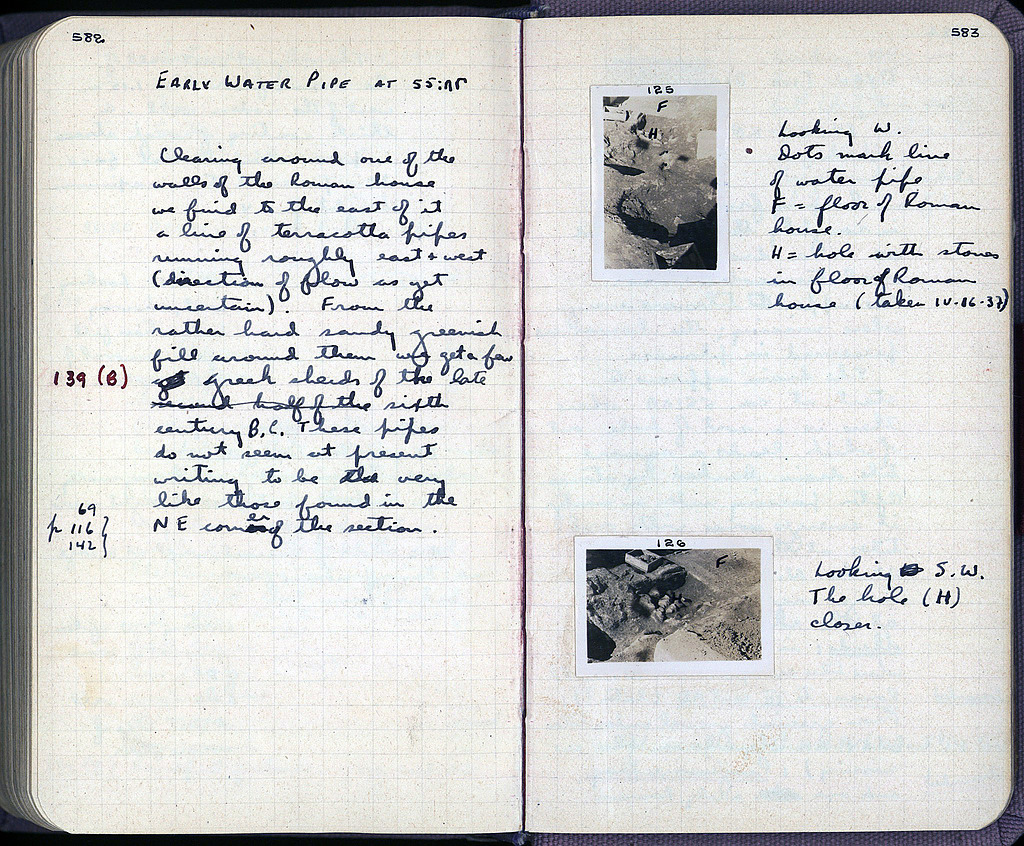 582
EARLY WATER PIPE AT 55:ΛΓ
Clearing around one of the
walls of the Roman house
we find to the east of it
a line of terracotta pipes
running roughly east + west
(direction of flow as yet
uncertain). From the
rather hard sandy greenish
fill around them we get a few
139 (B)
greek sherds of the late
second half of the sixth
century B.C. These pipes
do not seem at present
writing to be very
like those found in the
NE corner of the section.
69
p 116
142
583
125
F
H
Looking W.
Dots mark line
of water pipe
F = floor of Roman
house.
H = hole with stones
in floor of Roman
house (taken IV-16-37)
126
F
H
Looking S.W.
The hole (H)
closer.